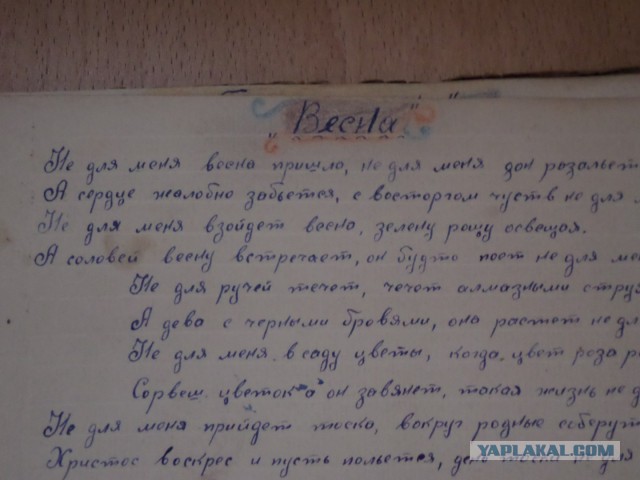 "Весна"
Не для меня весна пришло, не для меня дон розальет
А сердце жалобно забьется, с восторгом чуств не для
Не для меня взойдет весна, зелену рощу освещая.
А соловей весну встречает, он будто поет не для мен
Не для ручей течет, течет алмазными стру
А дева с черными бровями, она растет не дл
Не для меня в саду цветы, когда цвет роза р
Сорвеш цветок а он завянет, такая жизнь не д
Не для меня прийдет тоска, вокруг родные соберут
Христос воскрес и пусть польется, день для
YAPLAKAL.COM